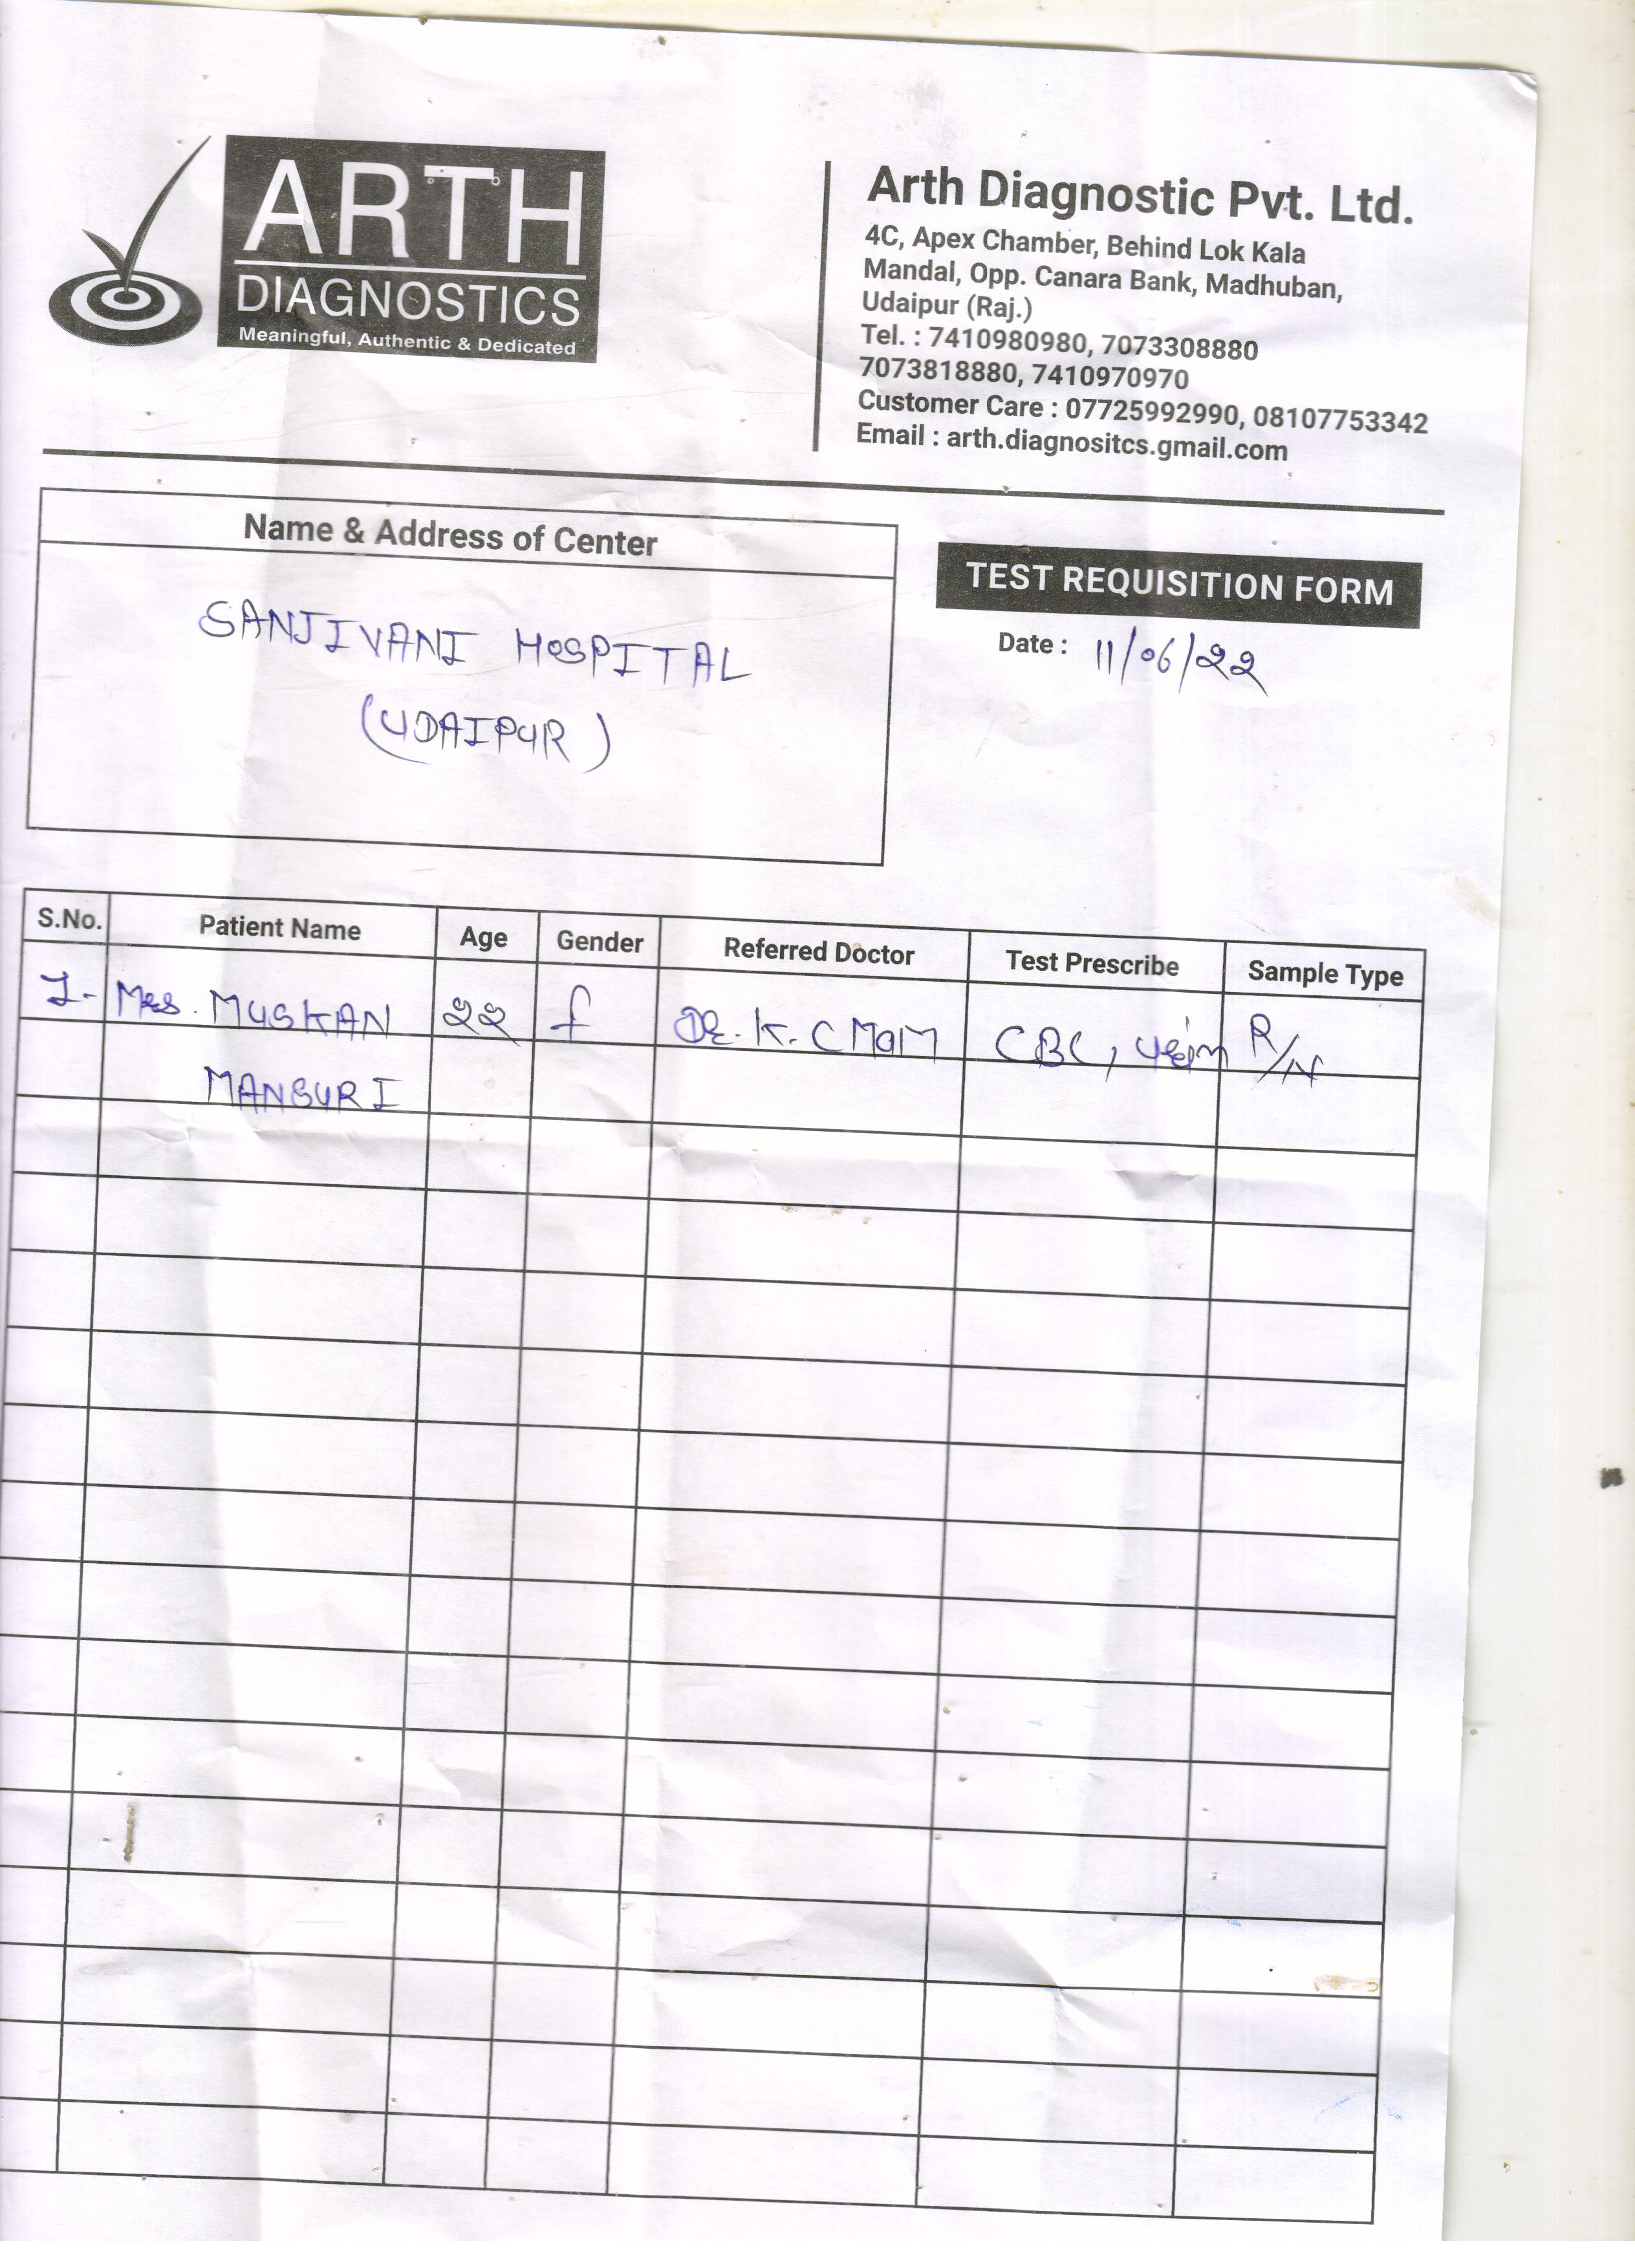 ARTH
DIAGNOSTICS
Meaningful, Authentic & Dedicated
Arth Diagnostic Pvt. Ltd.
4C, Apex Chamber, Behind Lok Kala
Mandal, Opp. Canara Bank, Madhuban,
Udaipur (Raj.)
Tel. : 7410980980, 7073308880
7073818880, 7410970970
Customer Care : 07725992990, 08107753342
Email : arth.diagnositcs.gmail.com
Name & Address of Center
SANJIVANI HOSPITAL
(UDAIPUR)
TEST REQUISITION FORM
Date : 11/06/22
S.No. Patient Name Age Gender Referred Doctor Test Prescribe Sample Type
1- Mrs. MUSKAN 22 f Dr. K. C MAM CBC, R/N
MANSURI